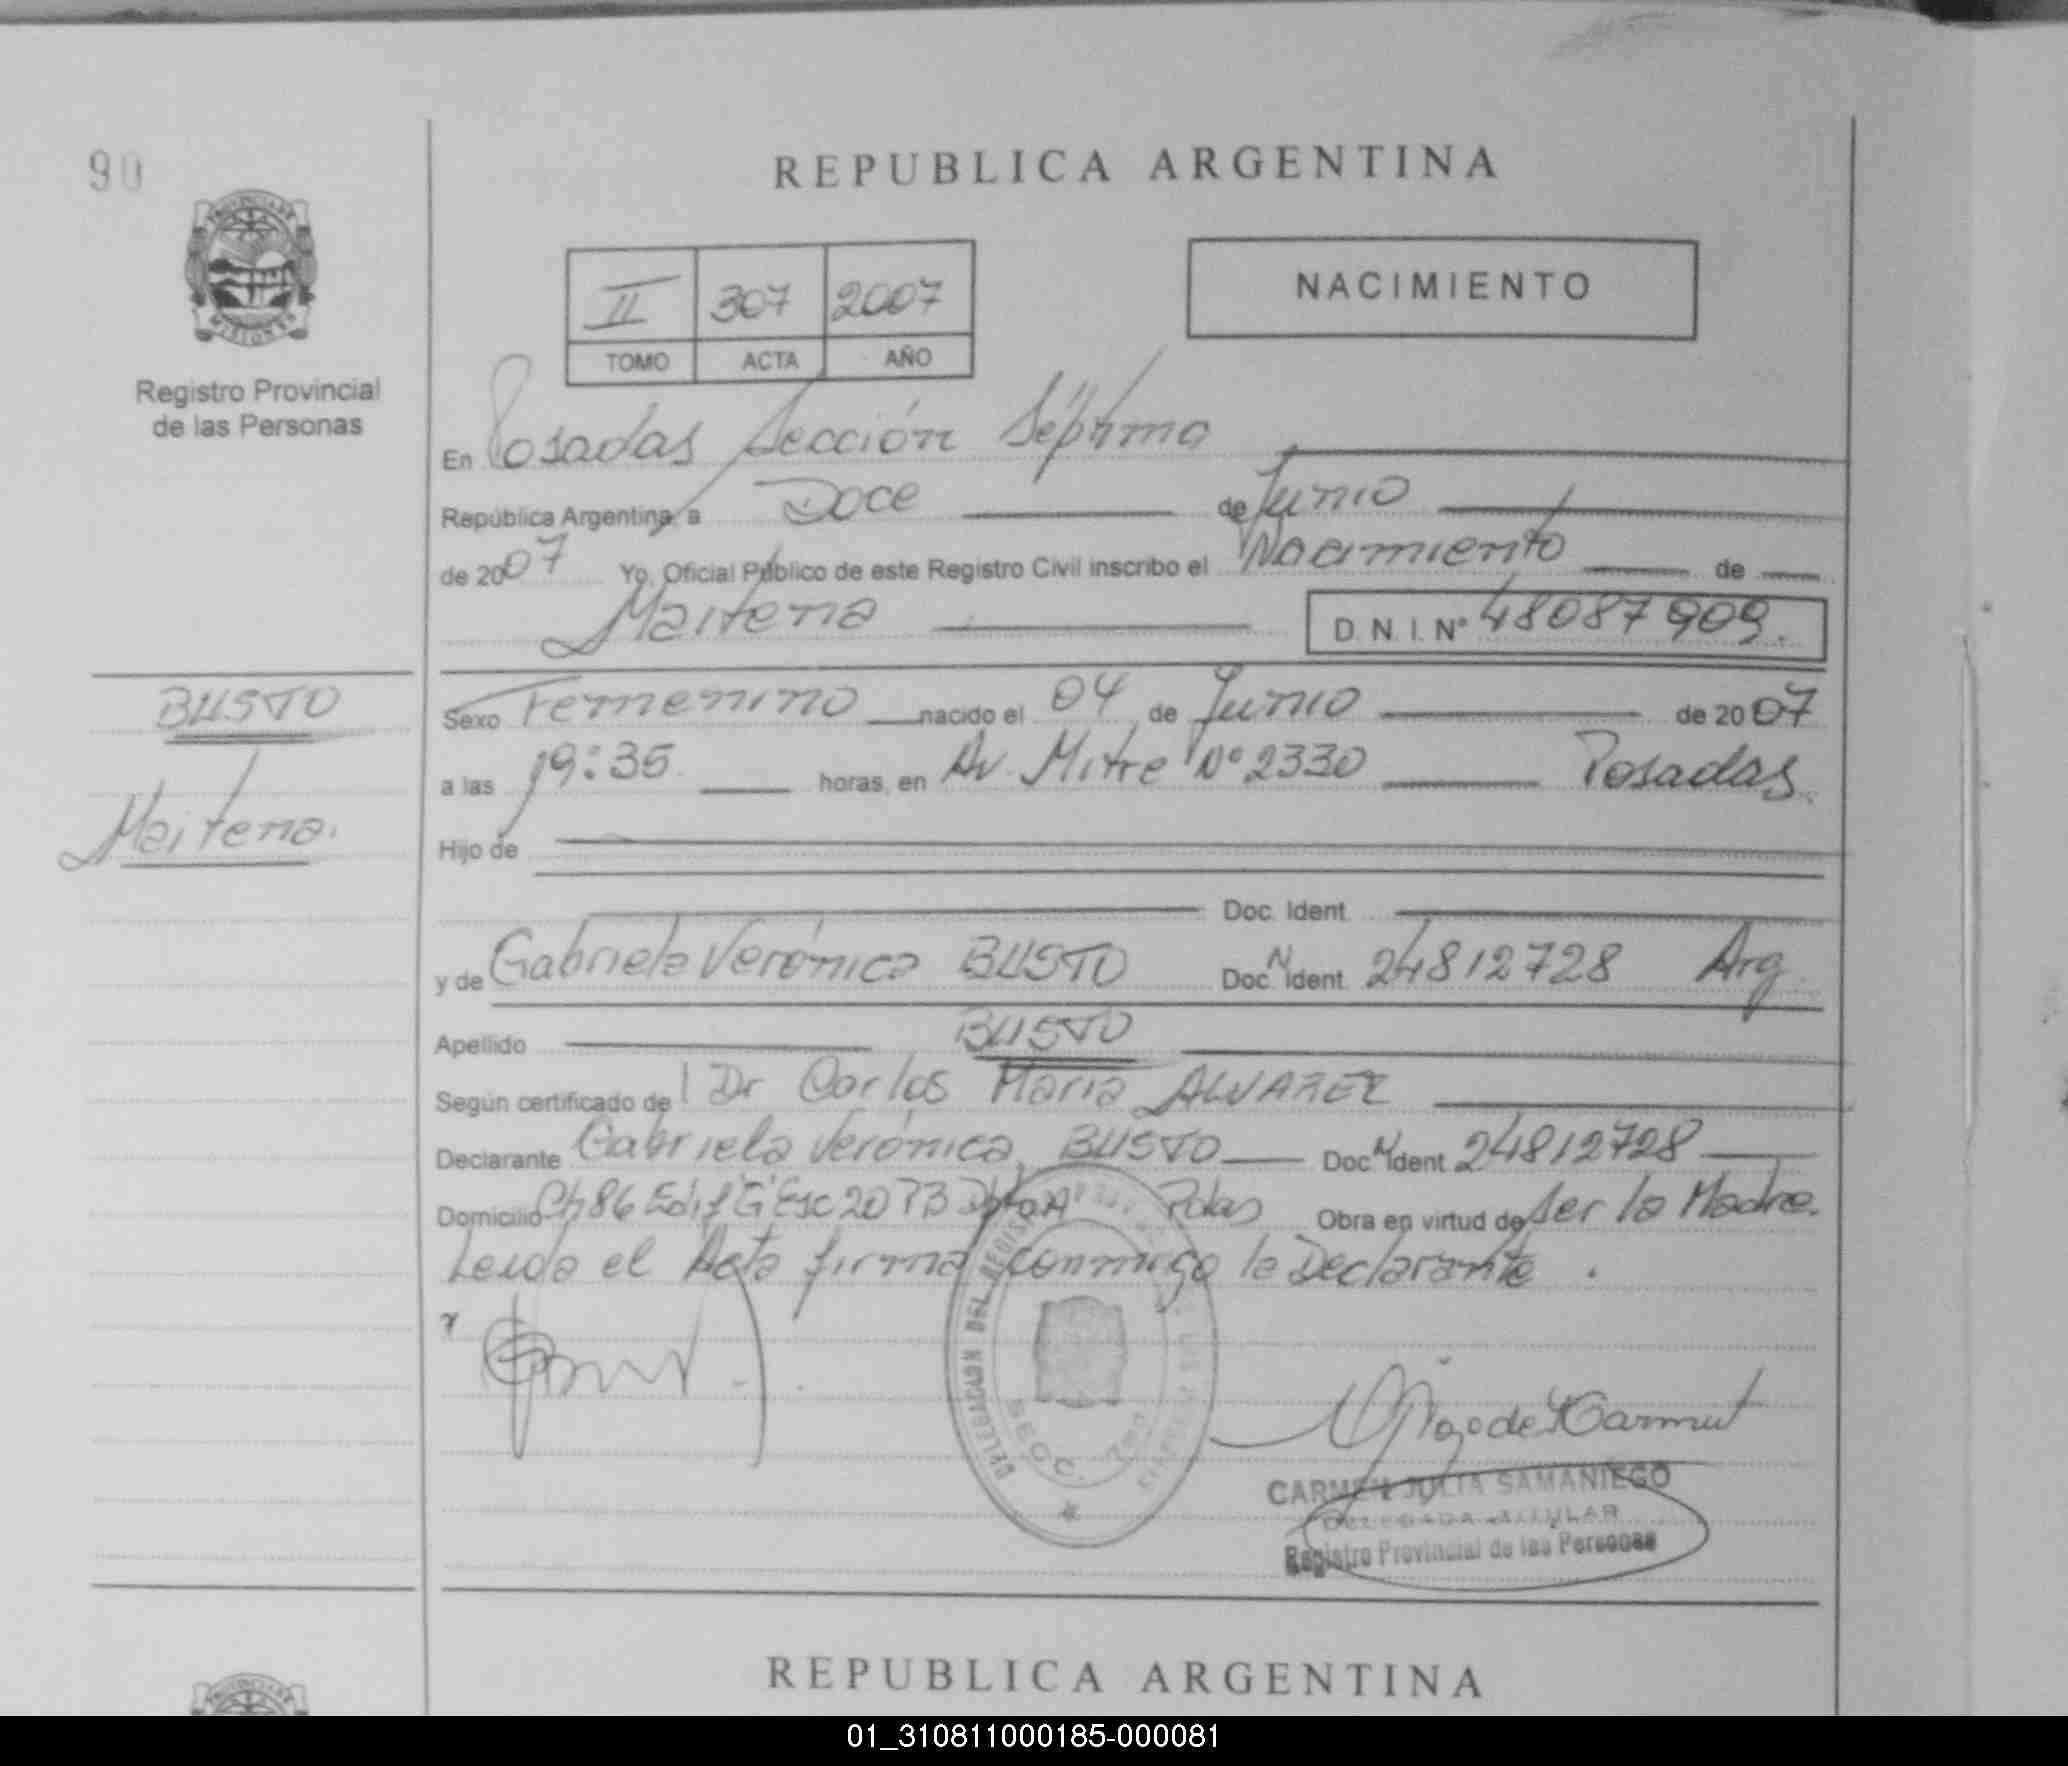 90
REPUBLICA ARGENTINA
PROVINCIA DE
MISIONES
Registro Provincial
de las Personas
II 307 2007
TOMO ACTA AÑO
NACIMIENTO
En Posadas Sección Séptima
República Argentina, a Doce de Junio
de 2007 Yo, Oficial Público de este Registro Civil inscribo el Nacimiento de
Maitena D.N.I. Nº 48087909.
BUSTO
Maitena.
Sexo Femenino nacido el 04 de Junio de 2007
a las 19:35 horas, en Av. Mitre Nº 2330 Posadas.
Hijo de
Doc. Ident.
y de Gabriela Verónica BUSTO Doc. N Ident. 24812728 Arg
Apellido BUSTO
Según certificado de Dr Carlos María ALVAREZ
Declarante Gabriela Verónica BUSTO Doc. N Ident 24812728
Domicilio Ch 86 Edif "G" Esc 20 Pdas Obra en virtud de Ser la Madre.
Leida el Acta firma conmigo la Declarante.
DELEGACION DEL REGISTRO
SECC. 7ma
CARMEN JULIA SAMANIEGO
DELEGADA TITULAR
Registro Provincial de las Personas
REPUBLICA ARGENTINA
01_310811000185-000081